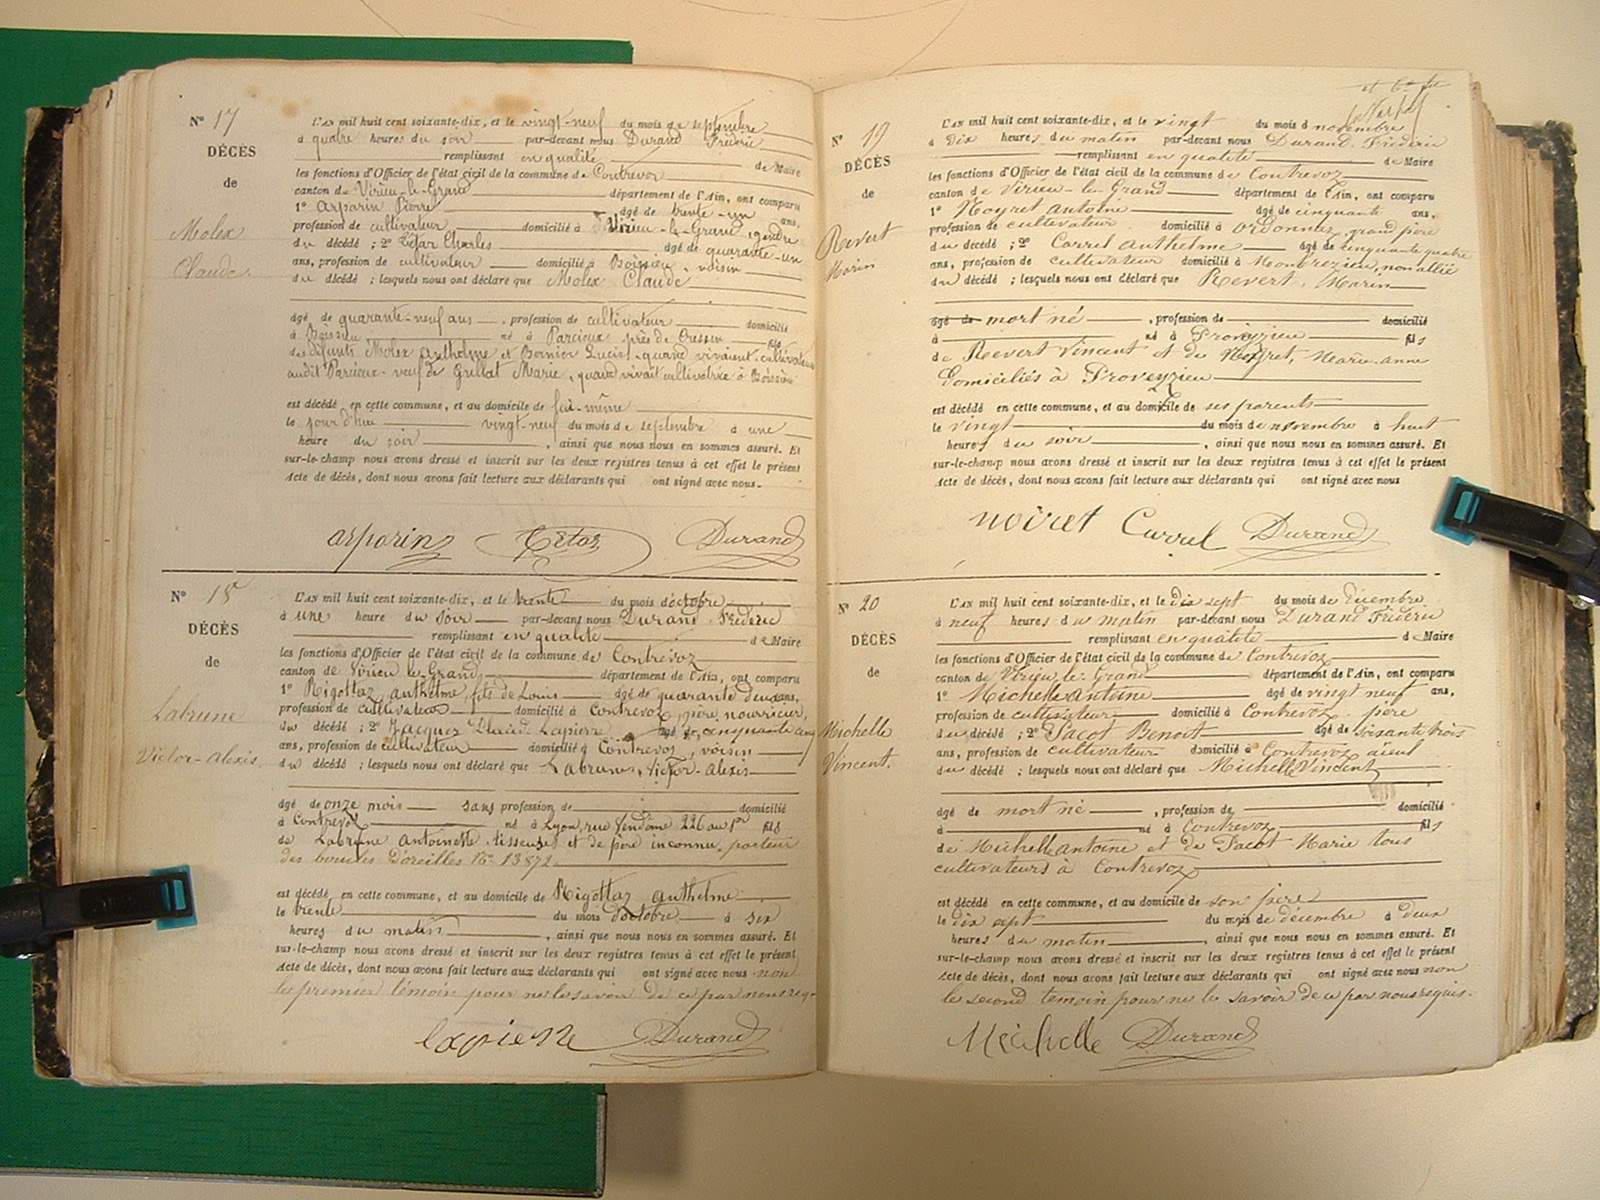 N° 17
DÉCÈS
de
Molex
Claude.
L'AN mil huit cent soixante-dix, et le vingt-neuf du mois de septembre
à quatre heures du soir par-devant nous Durand Frédéric
remplissant en qualité de Maire
les fonctions d'Officier de l'état civil de la commune de Contrevoz
canton de Virieu-le-Grand département de l'Ain, ont comparu
1° Arparin Pierre âgé de trente-un ans,
profession de cultivateur domicilié à Virieu-le-Grand, gendre
du décédé ; 2° Charles âgé de quarante-un
ans, profession de cultivateur domicilié à Boissieu, voisin
du décédé ; lesquels nous ont déclaré que Molex Claude
âgé de quarante-neuf ans, profession de cultivateur domicilié
à Boissieu né à Parcieux près de Cressin fils
des défunts Molex Anthelme et Bornier Lucie quand vivaient cultivateurs
audit Parcieux veuf de Grillat Marie, quand vivait cultivatrice à Boissieu
est décédé en cette commune, et au domicile de lui-même
le jour d'hui vingt-neuf du mois de septembre à une
heure du soir, ainsi que nous nous en sommes assuré. Et
sur-le-champ nous avons dressé et inscrit sur les deux registres tenus à cet effet le présent
acte de décès, dont nous avons fait lecture aux déclarants qui ont signé avec nous.
arparin Durand
N° 18
DÉCÈS
de
Labrune
Victor-Alexis.
L'AN mil huit cent soixante-dix, et le trente du mois d'octobre
à une heure du soir par-devant nous Durand Frédéric
remplissant en qualité de Maire
les fonctions d'Officier de l'état civil de la commune de Contrevoz
canton de Virieu-le-Grand département de l'Ain, ont comparu
1° Rigottaz anthelme, fils de Louis âgé de quarante deux ans,
profession de cultivateur domicilié à Contrevoz, père nourricier,
du décédé ; 2° Jacques Lapierre âgé de cinquante cinq
ans, profession de cultivateur domicilié à Contrevoz, voisin
du décédé ; lesquels nous ont déclaré que Labrune, Victor-Alexis
âgé de onze mois sans profession de domicilié
à Contrevoz né à Lyon, rue Vendôme 226 au 1er fils
de Labrune Antoinette tisseuse et de père inconnu, porteur
des boucles d'oreilles No 13872
est décédé en cette commune, et au domicile de Rigottaz anthelme
le trente du mois d'octobre à six
heures du matin, ainsi que nous nous en sommes assuré. Et
sur-le-champ nous avons dressé et inscrit sur les deux registres tenus à cet effet le présent
acte de décès, dont nous avons fait lecture aux déclarants qui ont signé avec nous non
le premier témoin pour ne le savoir de ce par nous req.
lapierre Durand
N° 19
DÉCÈS
de
Revert
Marin
L'AN mil huit cent soixante-dix, et le vingt du mois d novembre
à dix heures du matin par-devant nous Durand Frédéric
remplissant en qualité de Maire
les fonctions d'Officier de l'état civil de la commune de Contrevoz
canton de Virieu-le-Grand département de l'Ain, ont comparu
1° Noyret Antoine âgé de cinquante ans,
profession de cultivateur domicilié à Ordonnaz, grand père
du décédé ; 2° Currel Anthelme âgé de cinquante quatre
ans, profession de cultivateur domicilié à Montbrezieu, non allié
du décédé ; lesquels nous ont déclaré que Revert, Marin
âgé de mort né, profession de domicilié
à né à Proveyzieu fils
de Revert Vincent et de Noyret, Marie-anne
Domiciliés à Proveyzieu
est décédé en cette commune, et au domicile de ses parents
le vingt du mois de novembre à huit
heures du soir, ainsi que nous nous en sommes assuré. Et
sur-le-champ nous avons dressé et inscrit sur les deux registres tenus à cet effet le présent
acte de décès, dont nous avons fait lecture aux déclarants qui ont signé avec nous
noiret Currel Durand
N° 20
DÉCÈS
de
Michelle
Vincent.
L'AN mil huit cent soixante-dix, et le dix sept du mois de décembre
à neuf heures du matin par-devant nous Durand Frédéric
remplissant en qualité de Maire
les fonctions d'Officier de l'état civil de la commune de Contrevoz
canton de Virieu-le-Grand département de l'Ain, ont comparu
1° Michelle Antoine âgé de vingt neuf ans,
profession de cultivateur domicilié à Contrevoz père
du décédé ; 2° Jacot Benoît âgé de soixante trois
ans, profession de cultivateur domicilié à Contrevoz aïeul
du décédé ; lesquels nous ont déclaré que Michelle Vincent
âgé de mort né, profession de domicilié
à né à Contrevoz fils
de Michelle Antoine et de Jacot Marie tous
cultivateurs à Contrevoz
est décédé en cette commune, et au domicile de son père
le dix sept du mois de décembre à deux
heures du matin, ainsi que nous nous en sommes assuré. Et
sur-le-champ nous avons dressé et inscrit sur les deux registres tenus à cet effet le présent
acte de décès, dont nous avons fait lecture aux déclarants qui ont signé avec nous non
le second témoin pour ne le savoir de ce par nous requis.
Michelle Durand